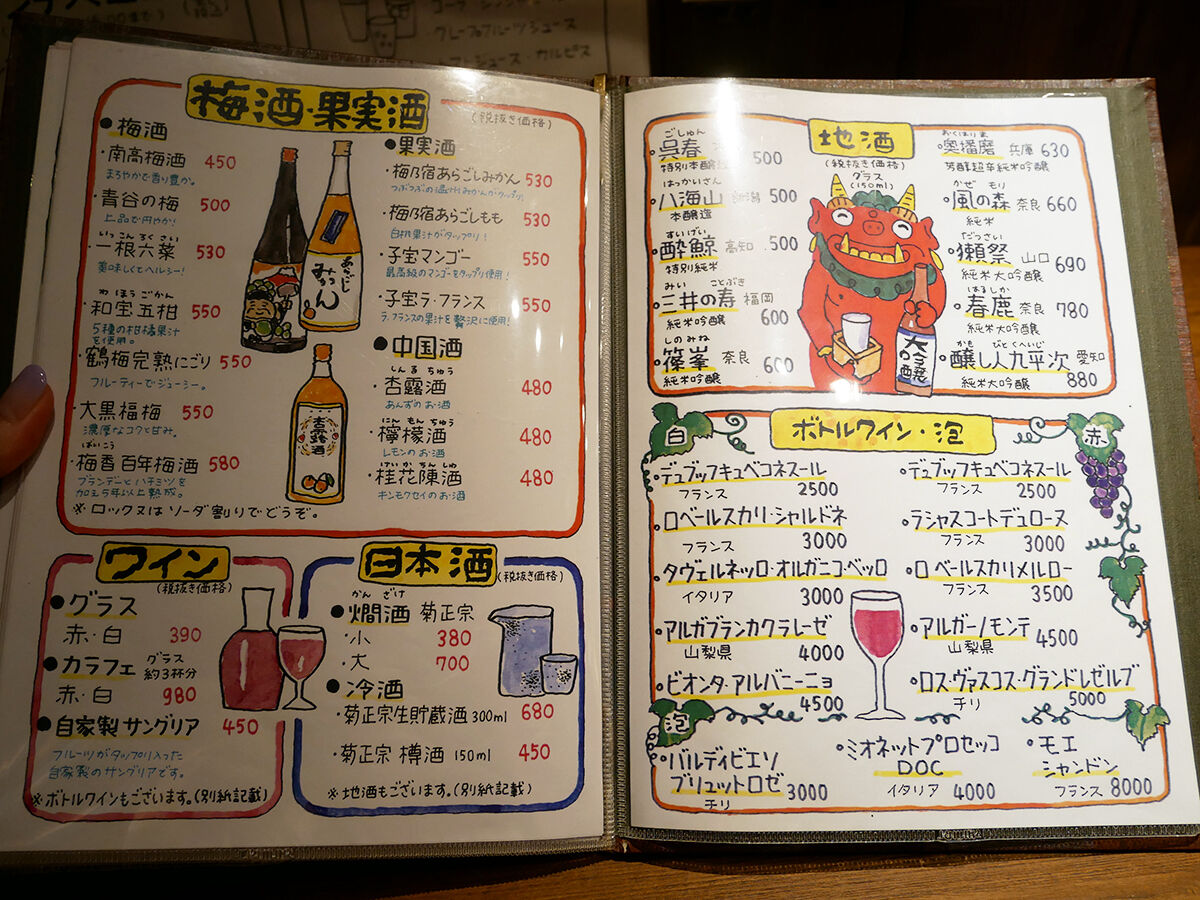 梅酒・果実酒
(税抜き価格)
●梅酒
・南高梅酒 450
まろやかで香り豊か。
・青谷の梅 500
上品で円やか!
いっこんろくさい
・一根六菜 530
美味しくてヘルシー!
わほうごかん
・和宝五柑 550
5種の柑橘果汁
を使用。
・鶴梅完熟にごり 550
フルーティーでジューシー。
・大黒福梅 550
濃厚なコクと甘み。
ばいこう
・梅香百年梅酒 580
ブランデーとハチミツを
加え5年以上熟成。
※ロック又はソーダ割りでどうぞ。
●果実酒
・梅乃宿あらごしみかん 530
つぶつぶの温州みかんがタップリ。
・梅乃宿あらごしもも 530
白桃果汁がタップリ!
・子宝マンゴー 550
最高級のマンゴーをタップリ使用!
・子宝ラ・フランス 550
ラ・フランスの果汁を贅沢に使用!
●中国酒
しんるちゅう
・杏露酒 480
あんずのお酒
にんもんちゅう
・檸檬酒 480
レモンのお酒
けいかちんしゅ
・桂花陳酒 480
キンモクセイのお酒
あらごし
みかん
杏露酒
ワイン
(税抜き価格)
●グラス
赤・白 390
●カラフェ グラス
約3杯分
赤・白 980
●自家製サングリア 450
フルーツがタップリ入った
自家製のサングリアです。
※ボトルワインもございます。(別紙記載)
日本酒
(税抜き価格)
かんざけ
●燗酒 菊正宗
・小 380
・大 700
●冷酒
・菊正宗生貯蔵酒 300ml 680
・菊正宗 樽酒 150ml 450
※地酒もございます。(別紙記載)
地酒
(税抜き価格)
グラス
(150ml)
ごしゅん
・呉春 500
特別本醸
はっかいさん
・八海山 新潟 500
本醸造
すいげい
・酔鯨 高知 500
特別純米
みいことぶき
・三井の寿 福岡
純米吟醸 600
しのみね
・篠峯 奈良 600
純米吟醸
おくはりま
・奥播磨 兵庫 630
芳醇超辛純米吟醸
かぜ モリ
・風の森 奈良 660
純米
だっさい
・獺祭 山口 690
純米大吟醸
はるしか
・春鹿 奈良 780
純米大吟醸
かもびとくへいじ
・醸し人九平次 愛知
純米大吟醸 880
大吟醸
ボトルワイン・泡
白
・デュブッフキュベコネスール
フランス 2500
・ロベールスカリ・シャルドネ
フランス 3000
・タヴェルネッロ・オルガニコ・ベッロ
イタリア 3000
・アルガブランカクラレーゼ
山梨県 4000
・ビオンタ・アルバニーニョ
4500
赤
・デュブッフキュベコネスール
フランス 2500
・ラシャスコートデュローヌ
フランス 3000
・ロベールスカリメルロー
フランス 3500
・アルガーノモンテ
山梨県 4500
・ロス・ヴァスコス・グランドレゼルブ
チリ 5000
泡
・バルディビエソ
ブリュットロゼ
チリ 3000
・ミオネットプロセッコ
DOC
イタリア 4000
・モエ
シャンドン
フランス 8000